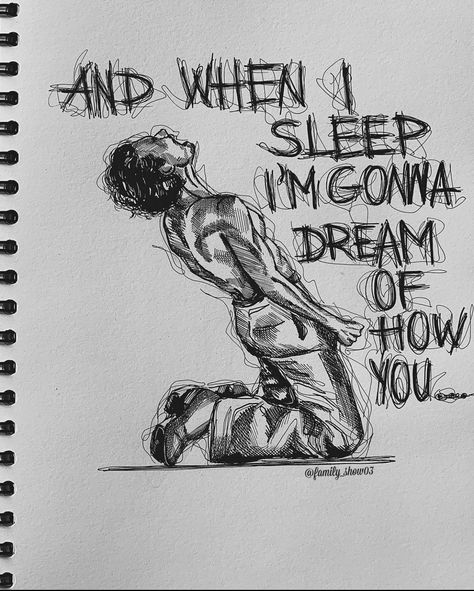 AND WHEN I
SLEEP
I'M GONNA
DREAM
OF
HOW
YOU...
@family_show03